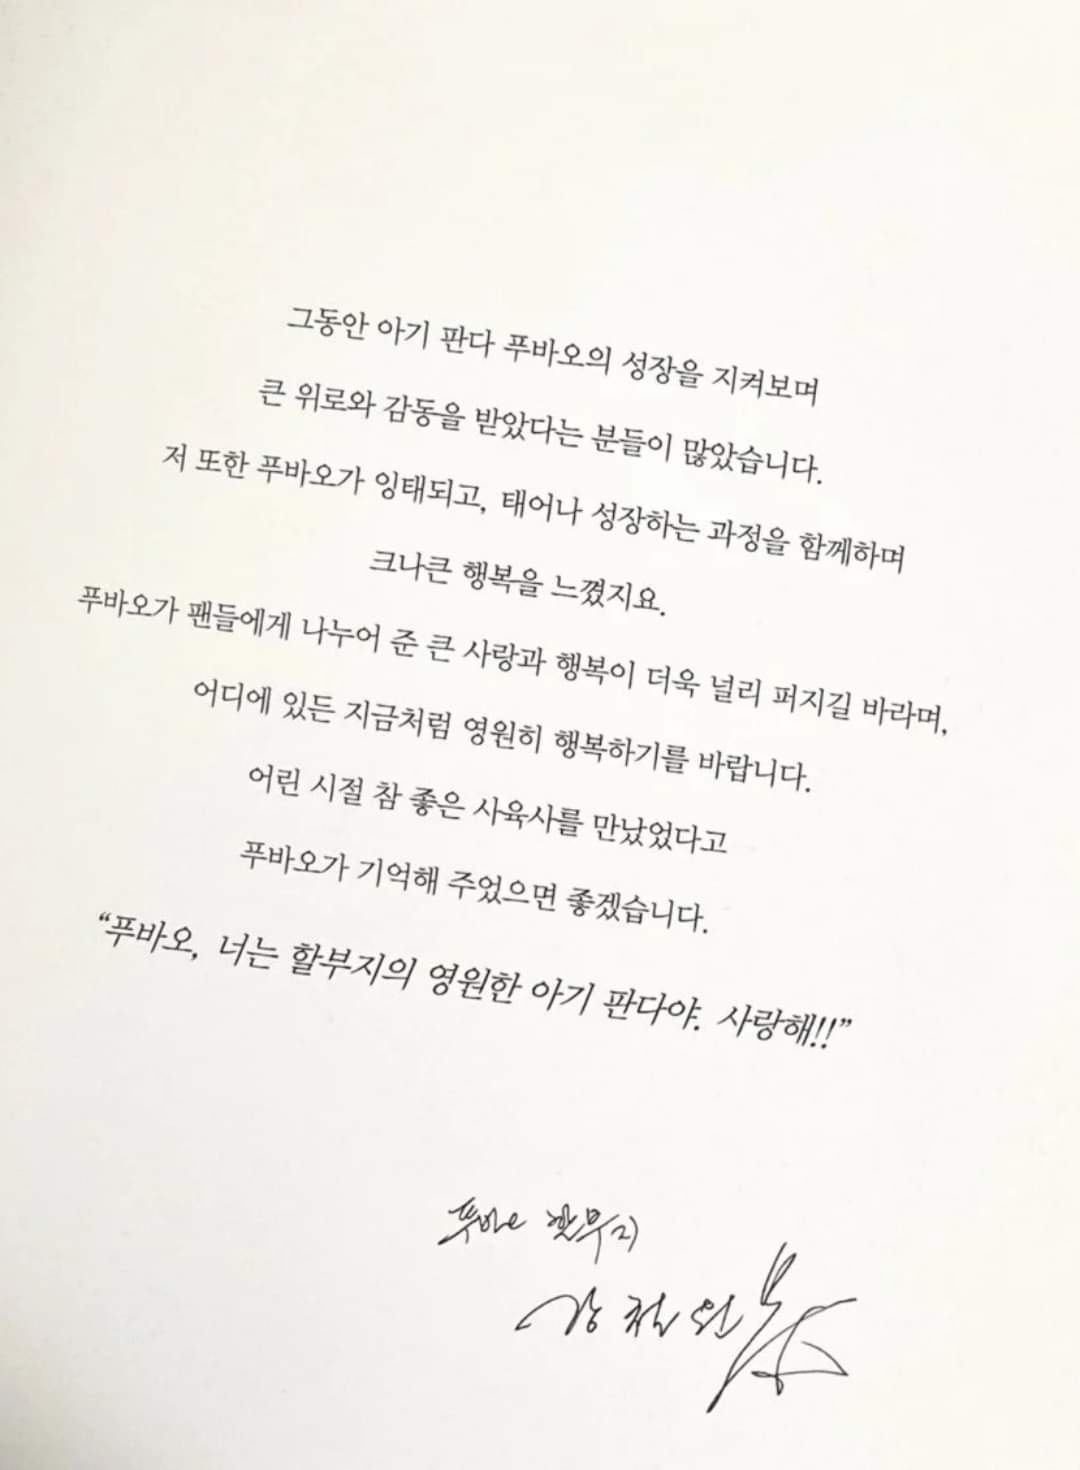 그동안 아기 판다 푸바오의 성장을 지켜보며
큰 위로와 감동을 받았다는 분들이 많았습니다.
저 또한 푸바오가 잉태되고, 태어나 성장하는 과정을 함께하며
크나큰 행복을 느꼈지요.
푸바오가 팬들에게 나누어 준 큰 사랑과 행복이 더욱 널리 퍼지길 바라며,
어디에 있든 지금처럼 영원히 행복하기를 바랍니다.
어린 시절 참 좋은 사육사를 만났었다고
푸바오가 기억해 주었으면 좋겠습니다.
“푸바오, 너는 할부지의 영원한 아기 판다야. 사랑해!!”
푸바오 할부지
강철원